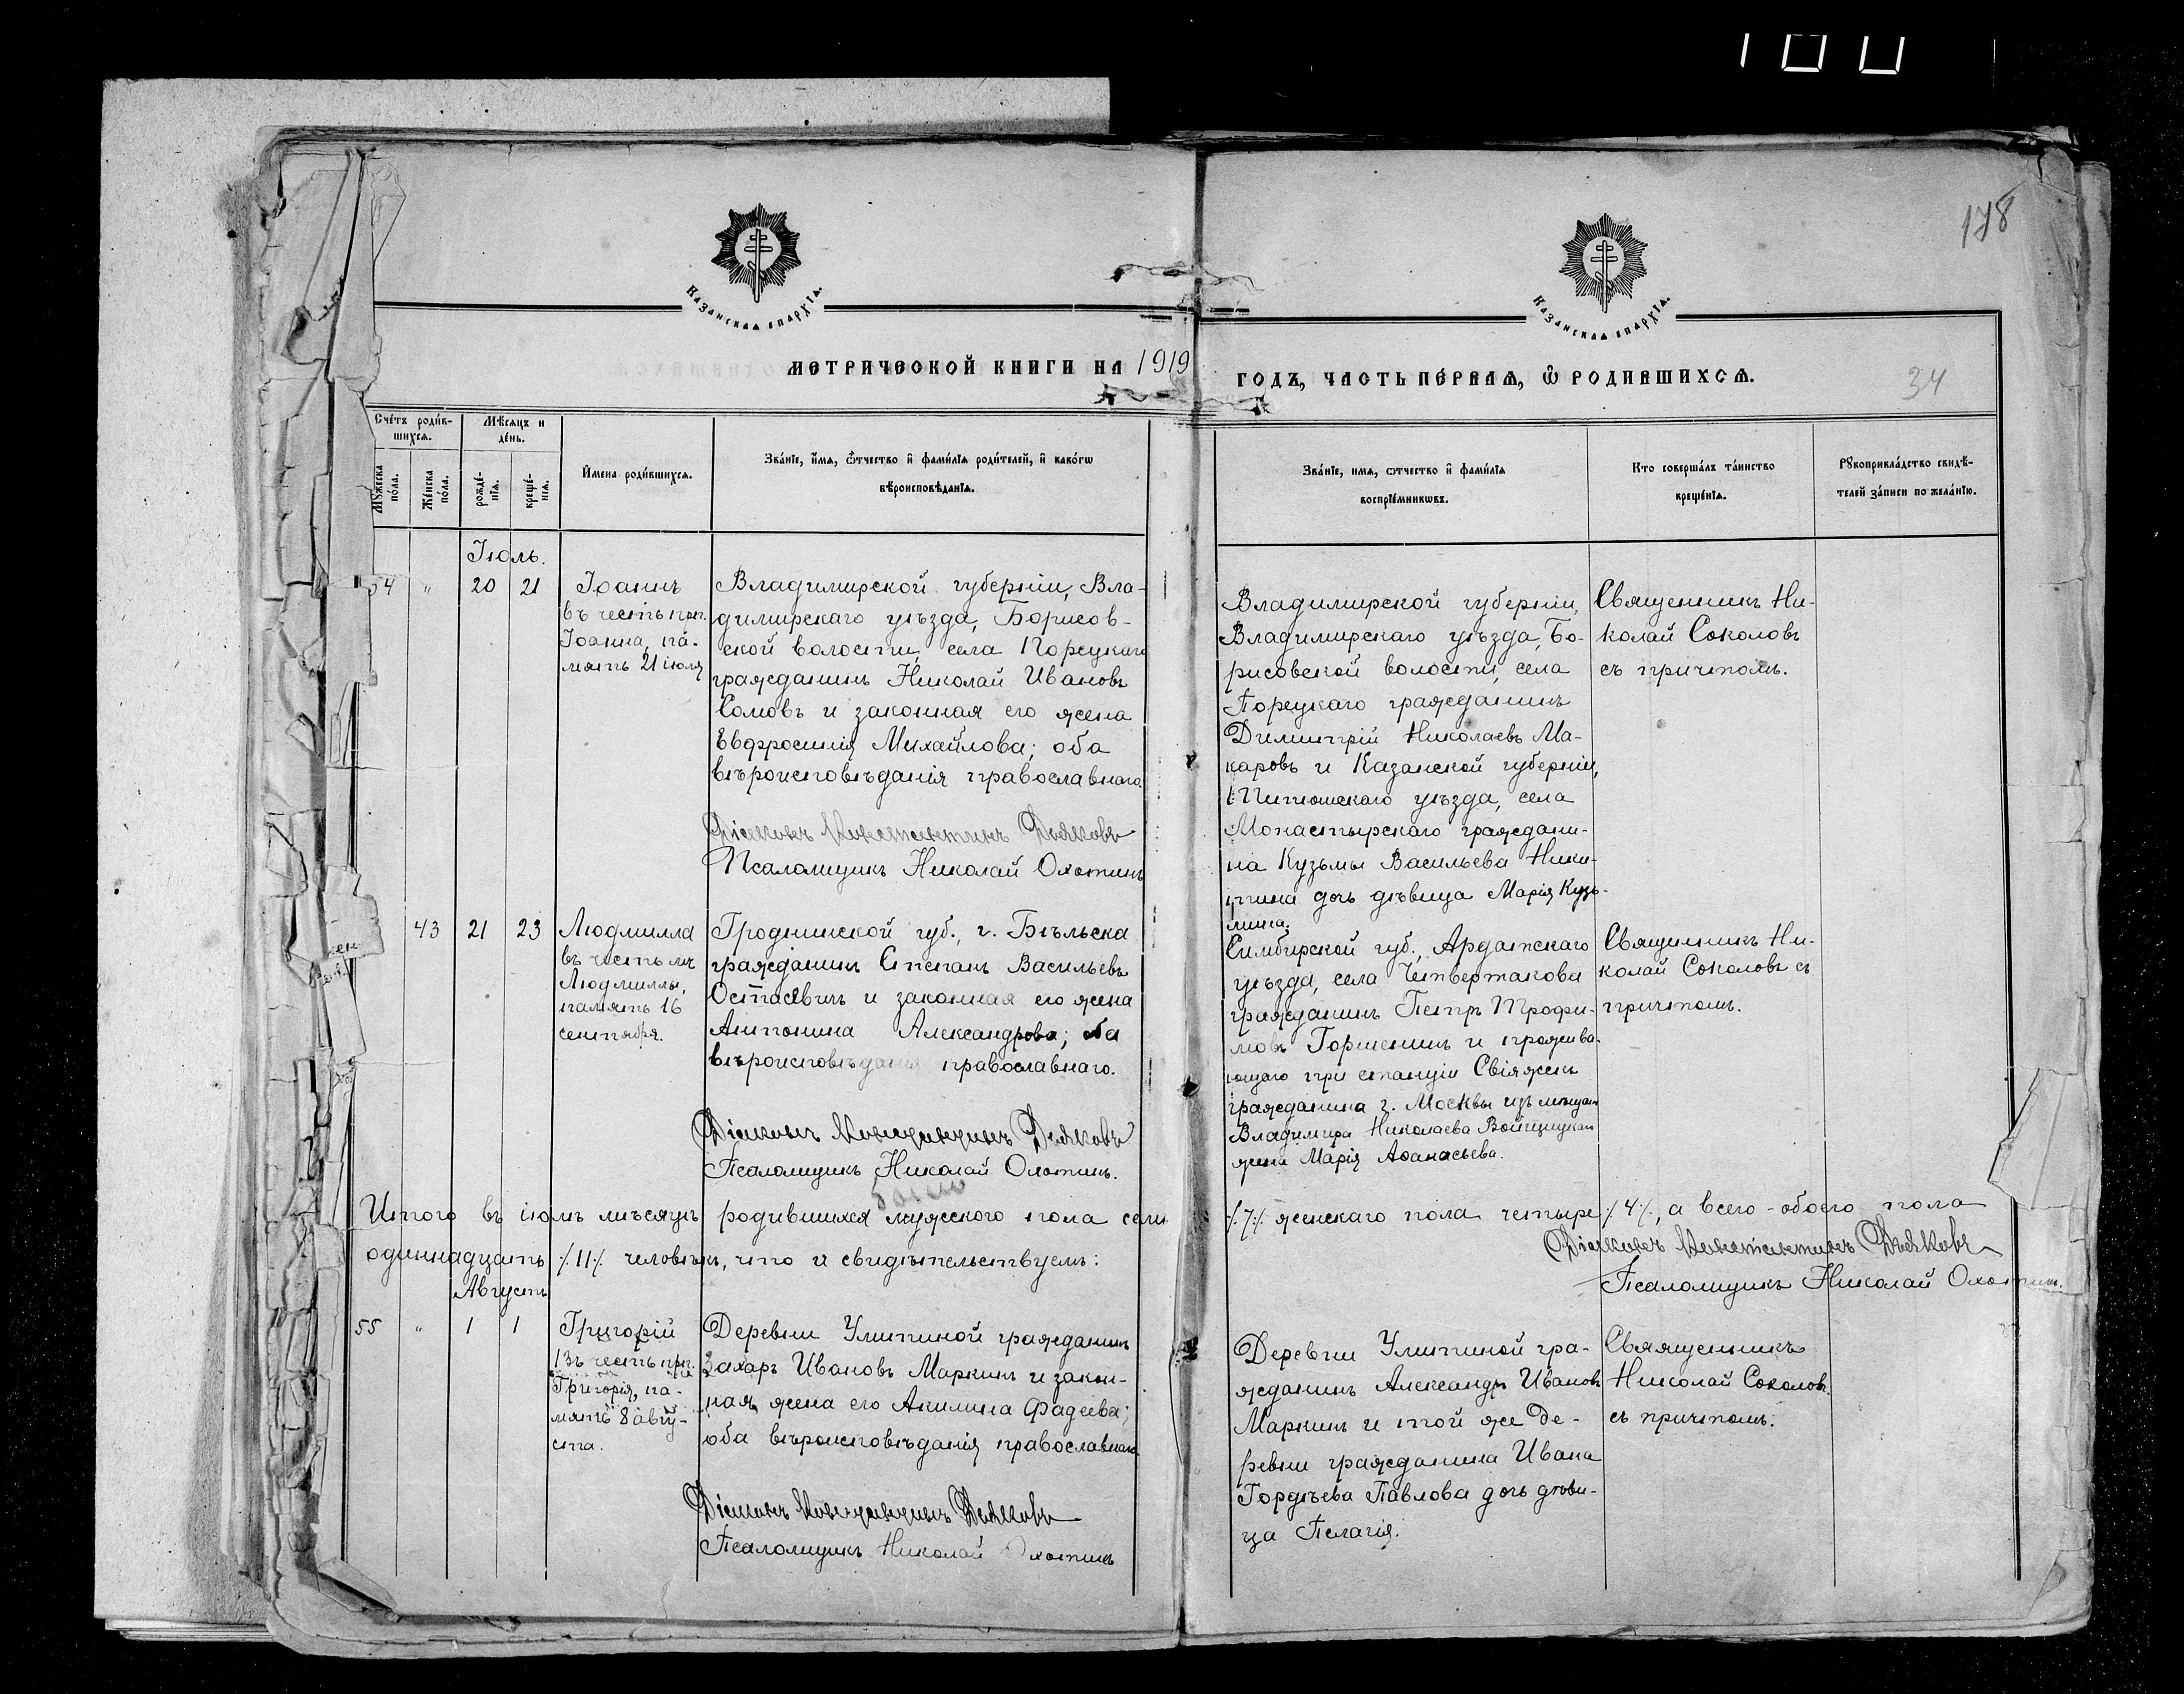 178
Казанская епархія.
Казанская епархія.
МЕТРИЧЕСКОЙ КНИГИ НА 1919
ГОДЪ, ЧАСТЬ ПЕ́РВАЯ, Ѿ РОДИВШИХСЯ.
34
Сче́тъ роди́в-
шихся.
Мѣ́сяцъ и
де́нь.
Мꙋжеска
по́ла.
Же́нска
по́ла.
рожде́-
нія.
креще́-
нія.
И҆мена роди́вшихся.
Зва́ніе, и҆́мя, ѻ҆́тчество и҆ фами́лія роди́телей, и҆ како́гѡ
вѣроисповѣ́данія.
Зва́ніе, имя, ѻтчество и҆ фами́лія
воспріе́мникѡвъ.
Кто соверша́лъ та́инство
креще́нія.
Рꙋкоприкла́дство свидѣ́-
телей за́писи по жела́нію.
Іюль.
54 " 20 21
Іоаннъ
въ честь прп.
Іоанна, па-
мять 21 іюля
Владимирской губерніи, Вла-
димирскаго уѣзда, Борисов-
ской волости, села Порецкаго
гражданинъ Николай Ивановъ
Сомовъ и законная его жена
Евфросинія Михайлова; оба
вѣроисповѣданія православнаго.
Діаконъ Константинъ Дьяковъ
Псаломщикъ Николай Охотинъ
Владимирской губерніи,
Владимирскаго уѣзда, Бо-
рисовской волости, села
Порецкаго гражданинъ
Димитрій Николаевъ Ма-
каровъ и Казанской губерніи,
уѣзда, села
Монастырскаго граждани-
на Кузьмы Васильева Ники-
тина дочь дѣвица Марія Кузь-
мина.
Священникъ Ни-
колай Соколовъ
съ причтомъ.
43 21 23
Людмилла
въ честь мч.
Людмиллы,
память 16
сентября.
Гродненской губ., г. Бѣльска
гражданинъ Степанъ Васильевъ
Остасевичъ и законная его жена
Антонина Александрова; оба
вѣроисповѣданія православнаго.
Діаконъ Константинъ Дьяковъ
Псаломщикъ Николай Охотинъ.
Симбирской губ., Ардатскаго
уѣзда, села Четвертакова
гражданинъ Петръ Трофи-
мовъ Горшенинъ и прожива-
ющаго при станціи Свіяжскъ
гражданина г. Москвы изъ мѣщанъ
Владимира Николаева
жена Марія Аѳанасьева.
Священникъ Ни-
колай Соколовъ съ
причтомъ.
Итого въ іюлѣ мѣсяцѣ родившихся мужского пола семь
/.7./. женскаго пола четыре /.4./., а всего обоего пола
одиннадцать /.11./. человѣкъ, что и свидѣтельствуемъ:
Діаконъ Константинъ Дьяковъ
Псаломщикъ Николай Охотинъ.
Августъ
55 " 1 1
Григорій
въ честь прп.
Григорія, па-
мять 8 авгу-
ста.
Деревни Улитиной гражданинъ
Захаръ Ивановъ Маркинъ и закон-
ная жена его Акилина Фадеева;
оба вѣроисповѣданія православнаго
Діаконъ Константинъ Дьяковъ
Псаломщикъ Николай Охотинъ
Деревни Улитиной гра-
жданинъ Александръ Ивановъ
Маркинъ и той же де-
ревни гражданина Ивана
Гордѣева Павлова дочь дѣви-
ца Пелагія.
Священникъ
Николай Соколовъ
съ причтомъ.